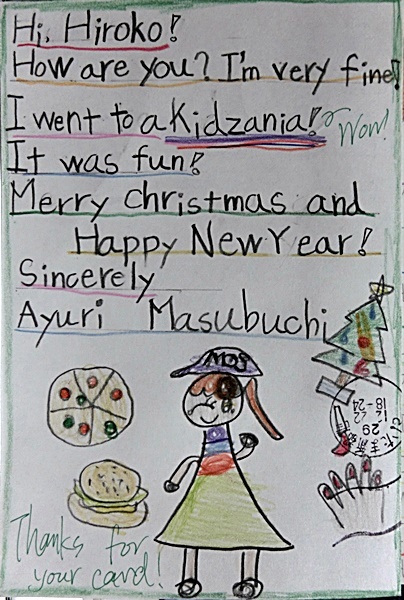 Hi, Hiroko!
How are you? I'm very fine!
I went to a Kidzania!
Wow!
It was fun!
Merry christmas and
Happy New Year!
Sincerely
Ayuri Masubuchi
MOS
29
18-24
Thanks for
your card!